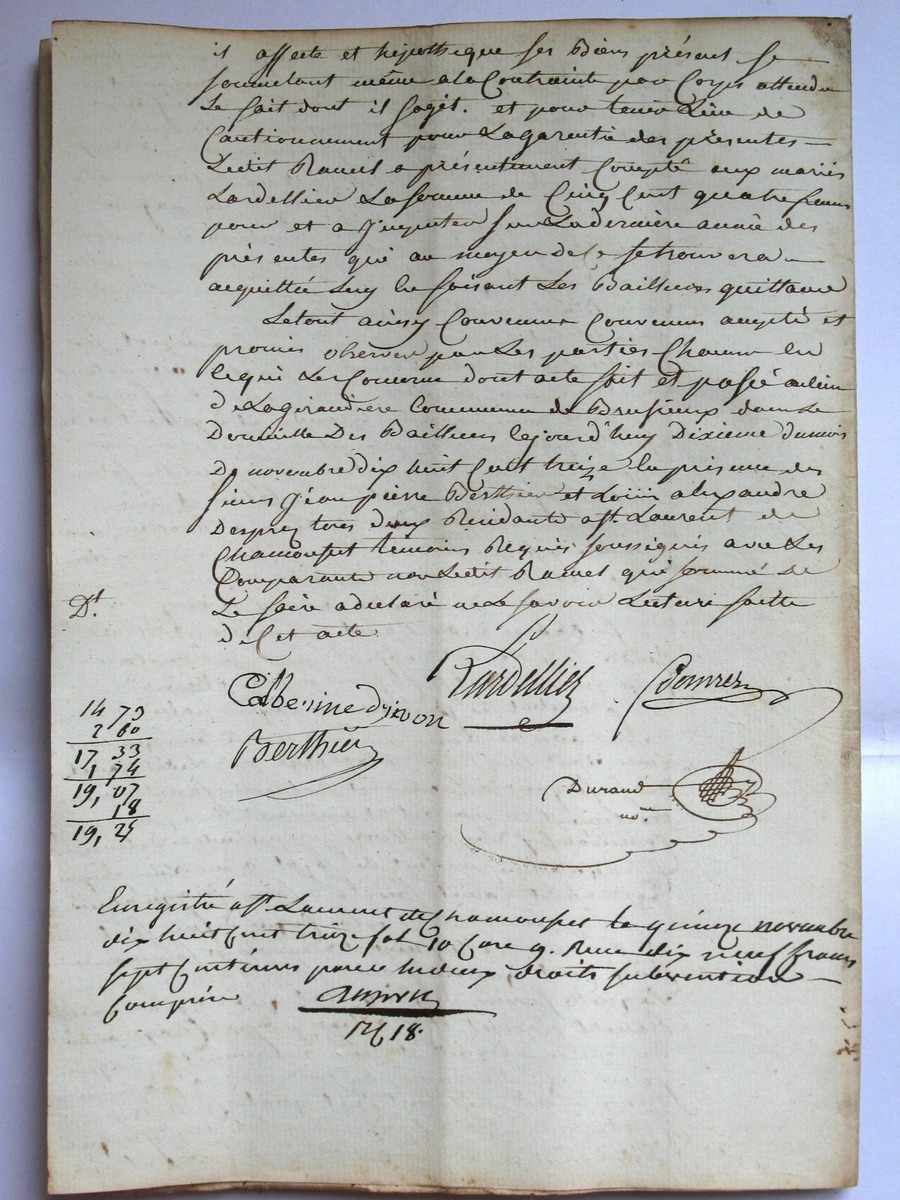 il affecte et hipotheque ses Biens présent se
soumetant même a la Contrainte par Corps attendu
Le fait dont il sagit. et pour tenir Lieu de
Cautionnement pour La garentie des présentes —
Ledit Ramel a présentement Compté aux mariés
Lardellier La somme de Cinq Cent quatre francs
pour et a Jmputer sur La derniere année des
présentes qui au moyen de Ce se trouvera —
acquittée Luy en faisant Les Bailleurs quittance
Le tout ainsy Convenu accepté et
promis observer par Les parties Chacune en
ce qui Les Concerne dont acte fait et passé au lieu
de Lagiraudiere Commune de Brusieux dans Le
Domicille Des Bailleurs le jourd'huy Dixieme du mois
De novembre dix huit Cent treize en présence des
sieurs Jean pierre Berthier et Louis alexandre
Desprez tous deux Residants a St. Laurent de
Chamousset témoins Requis soussignés avec Les
Comparants non Ledit Ramel qui sommé de
Le faire a déclaré ne Le savoir Lecture faitte
de Cet acte
Dt
Catherine Dyvon Lardellier
Berthier
Durand
no.re
14 73
2 60
17, 33
1, 74
19, 07
18
19, 25
Enregistré a St. Laurent de Chamousset le quinze novembre
dix huit Cent treize fol 10 Case 9. Recu dix neuf francs
sept Centimes pour deux droits subvention —
Comprise
18.